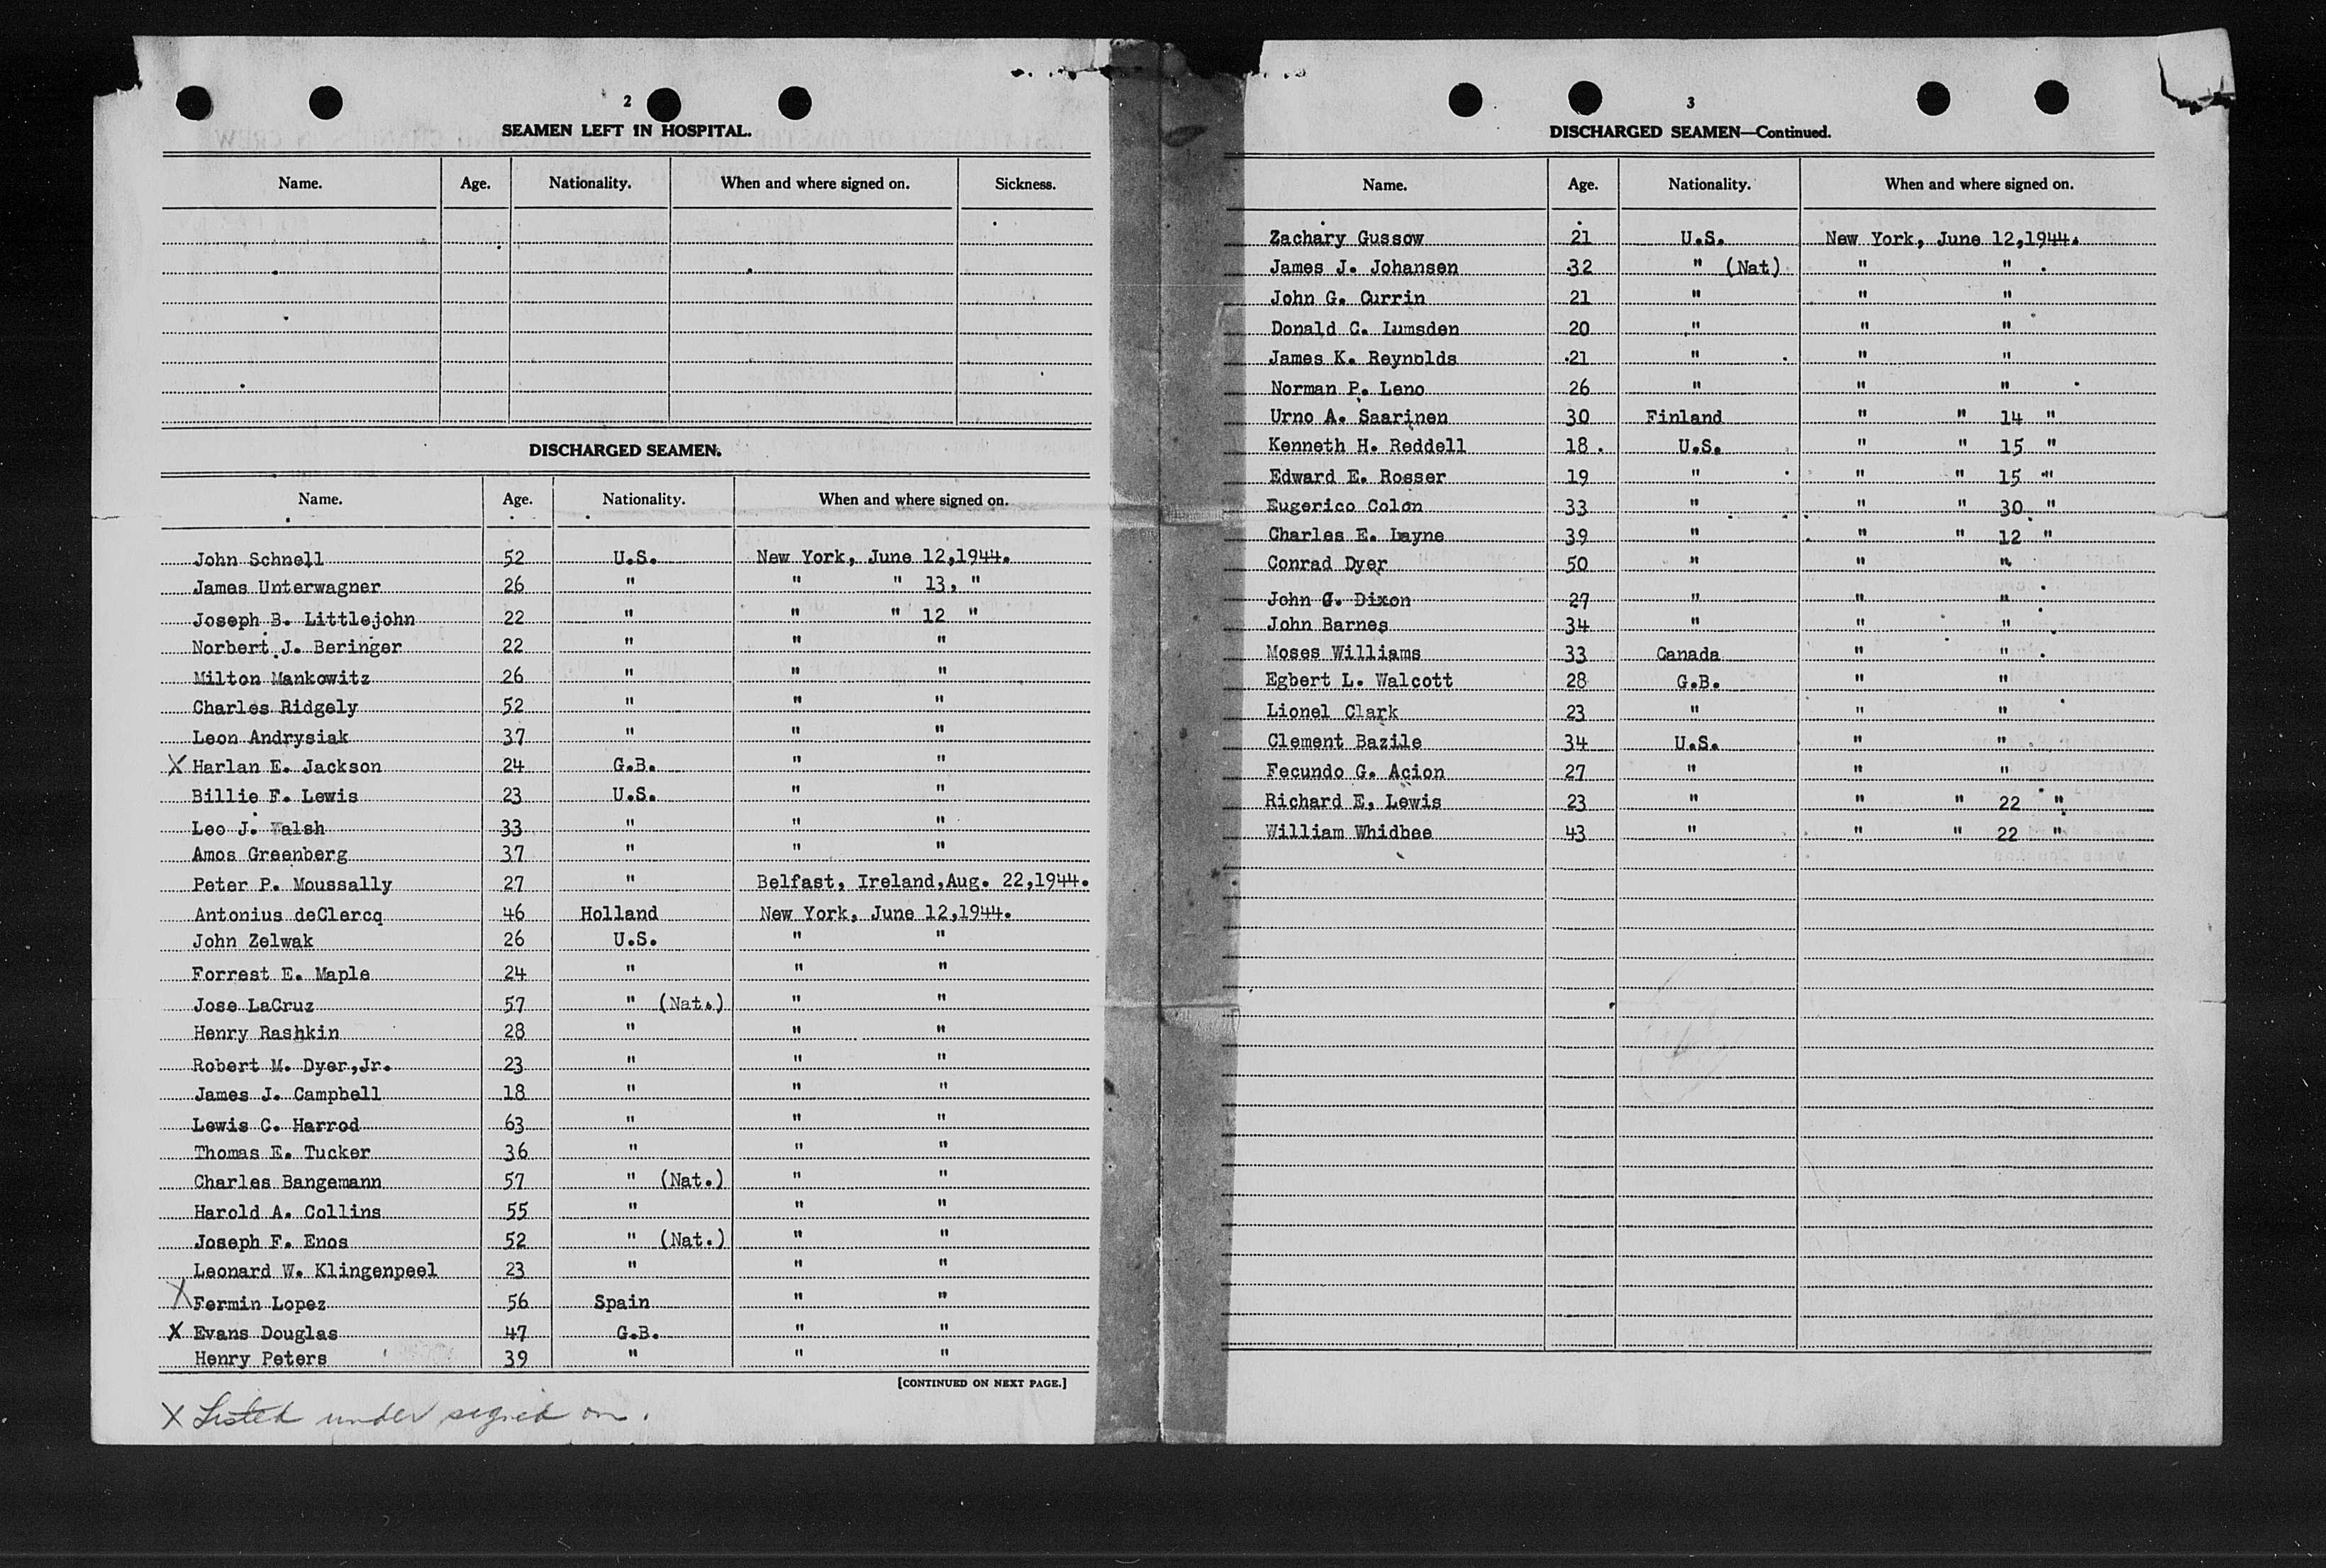 2
SEAMEN LEFT IN HOSPITAL.
Name. Age. Nationality. When and where signed on. Sickness.
DISCHARGED SEAMEN.
Name. Age. Nationality. When and where signed on.
John Schnell 52 U.S. New York, June 12,1944.
James Unterwagner 26 " " " 13, "
Joseph B. Littlejohn 22 " " " 12 "
Norbert J. Beringer 22 " " "
Milton Mankowitz 26 " " "
Charles Ridgely 52 " " "
Leon Andrysiak 37 " " "
X Harlan E. Jackson 24 G.B. " "
Billie F. Lewis 23 U.S. " "
Leo J. Walsh 33 " " "
Amos Greenberg 37 " " "
Peter P. Moussally 27 " Belfast, Ireland,Aug. 22,1944.
Antonius deClercq 46 Holland New York, June 12,1944.
John Zelwak 26 U.S. " "
Forrest E. Maple 24 " " "
Jose LaCruz 57 " (Nat.) " "
Henry Rashkin 28 " " "
Robert M. Dyer,Jr. 23 " " "
James J. Campbell 18 " " "
Lewis C. Harrod 63 " " "
Thomas E. Tucker 36 " " "
Charles Bangemann 57 " (Nat.) " "
Harold A. Collins 55 " " "
Joseph F. Enos 52 " (Nat.) " "
Leonard W. Klingenpeel 23 " " "
X Fermin Lopez 56 Spain " "
X Evans Douglas 47 G.B. " "
Henry Peters 39 " " "
[CONTINUED ON NEXT PAGE.]
X Listed under signed on.
3
DISCHARGED SEAMEN—Continued.
Name. Age. Nationality. When and where signed on.
Zachary Gussow 21 U.S. New York, June 12,1944.
James J. Johansen 32 " (Nat) " "
John G. Currin 21 " " "
Donald C. Lumsden 20 " " "
James K. Reynolds 21 " " "
Norman P. Leno 26 " " "
Urno A. Saarinen 30 Finland " " 14 "
Kenneth H. Reddell 18 U.S. " " 15 "
Edward E. Rosser 19 " " " 15 "
Eugerico Colon 33 " " " 30 "
Charles E. Layne 39 " " " 12 "
Conrad Dyer 50 " " "
John G. Dixon 27 " " "
John Barnes 34 " " "
Moses Williams 33 Canada " "
Egbert L. Walcott 28 G.B. " "
Lionel Clark 23 " " "
Clement Bazile 34 U.S. " "
Fecundo G. Acion 27 " " "
Richard E, Lewis 23 " " " 22 "
William Whidbee 43 " " " 22 "